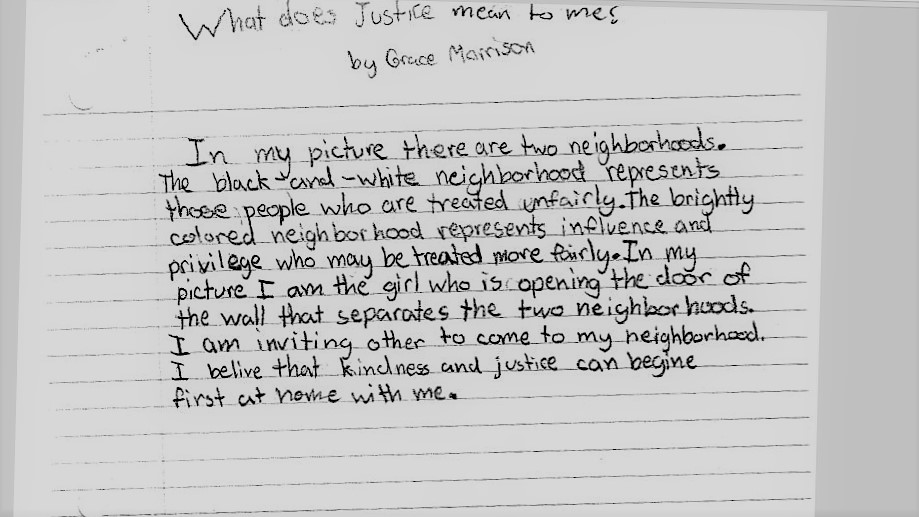 What does Justice mean to me?
by Grace Morrison
In my picture there are two neighborhoods.
The black-and-white neighborhood represents
those people who are treated unfairly. The brightly
colored neighborhood represents influence and
privilege who may be treated more fairly. In my
picture I am the girl who is opening the door of
the wall that separates the two neighborhoods.
I am inviting other to come to my neighborhood.
I belive that kindness and justice can begine
first at home with me.